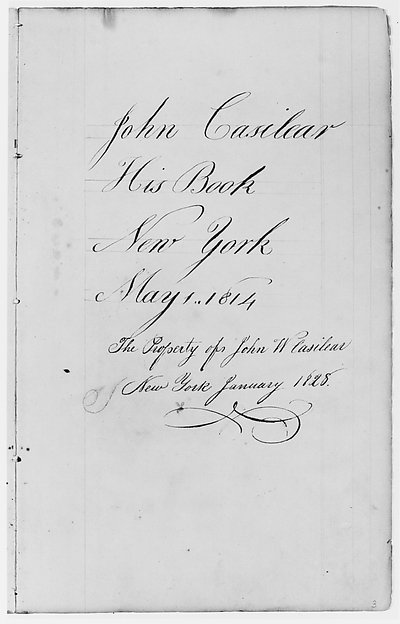 John Casilear
His Book
New York
May 1.. 1814
The Property of John W Casilear
New York January 1828.
3